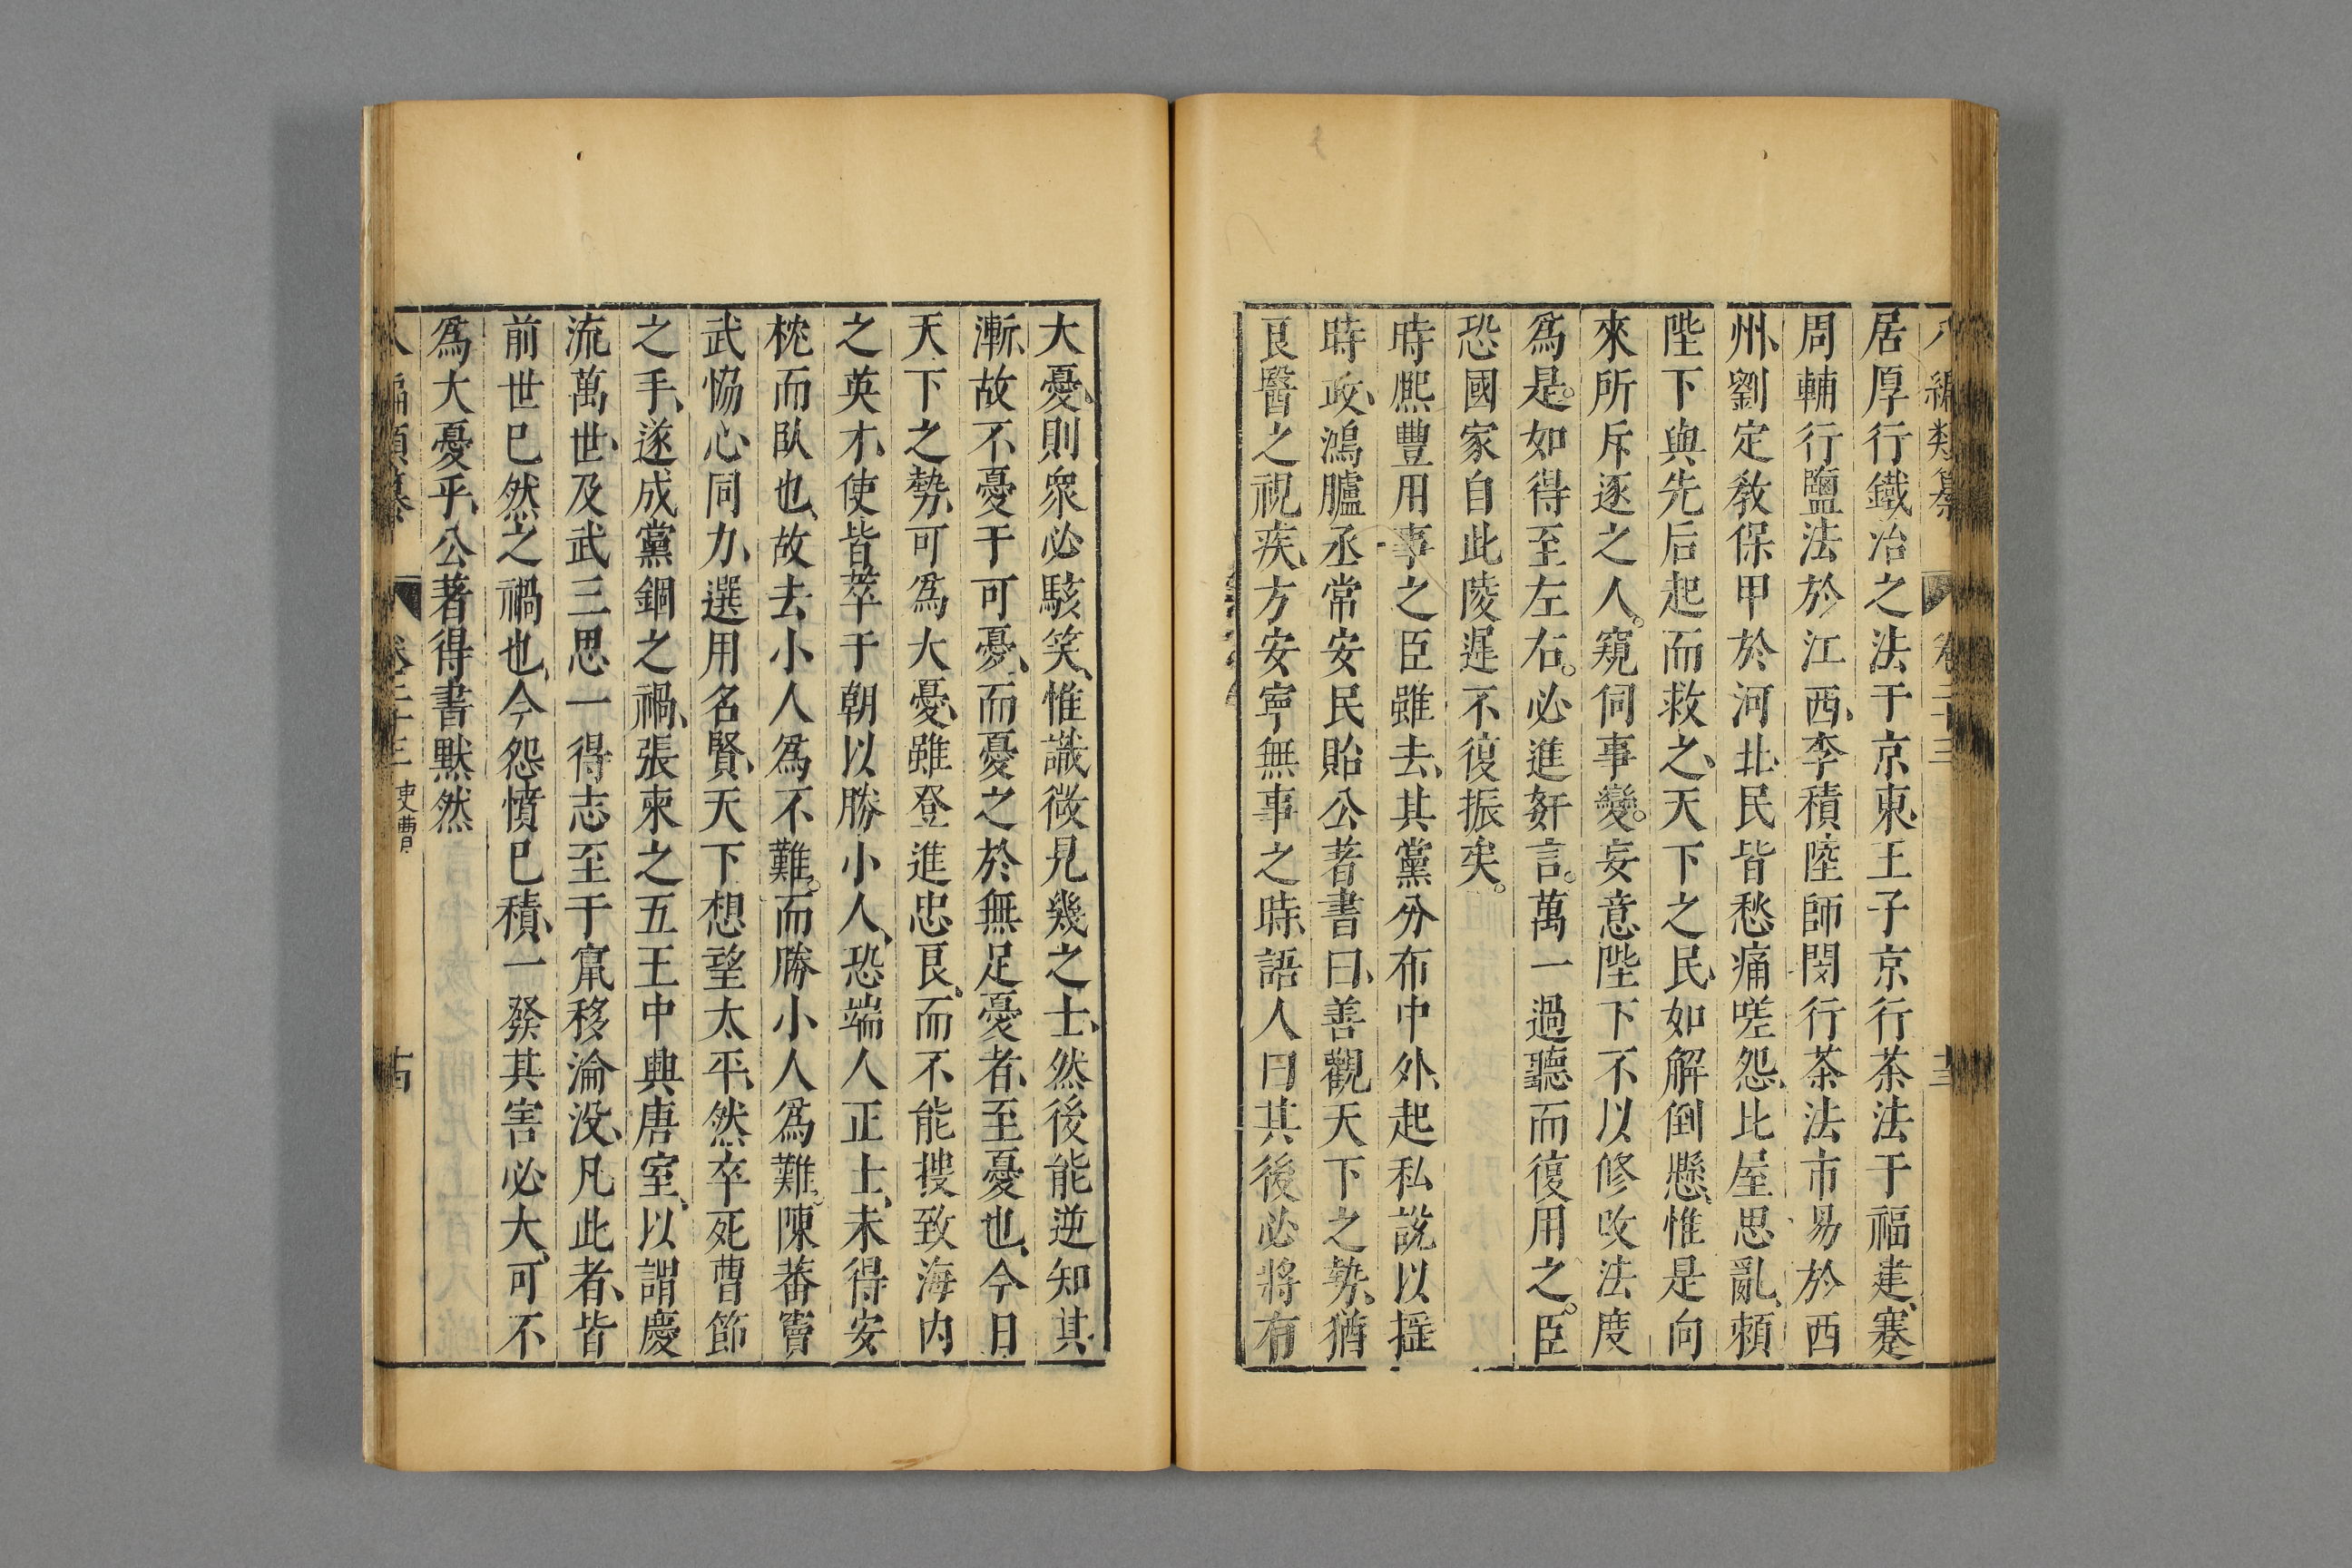 八編類纂 卷二十三 十三
居厚行鐵冶之法于京東、王子京行茶法于福建、蹇
周輔行鹽法於江西、李積、陸師閔行茶法市易於西
州、劉定敎保甲於河北、民皆愁痛嗟怨、比屋思亂、頼
陛下與先后起而救之、天下之民、如解倒懸、惟是向
來所斥逐之人。窺伺事變。妄意陛下不以修攺法度
爲是。如得至左右。必進奸言。萬一過聽而復用之。臣
恐國家自此陵遲不復振矣。
時熈豐用事之臣雖去、其黨分布中外、起私說以搖
時政、鴻臚丞常安民貽公著書曰、善觀天下之勢、猶
良醫之視疾、方安寧無事之時、語人曰其後必將有
大憂、則衆必駭笑、惟識微見幾之士、然後能逆知其
漸、故不憂于可憂、而憂之於無足憂者、至憂也、今日
天下之勢、可爲大憂、雖登進忠良、而不能搜致海内
之英才、使皆萃于朝以勝小人、恐端人正士、未得安
枕而臥也、故去小人爲不難。而勝小人爲難。陳蕃竇
武恊心同力、選用名賢、天下想望太平、然卒死曹節
之手、遂成黨錮之禍、張柬之五王中興唐室、以謂慶
流萬世、及武三思一得志至于竄移淪没、凡此者、皆
前世已然之禍也、今怨憤已積、一發其害必大、可不
爲大憂乎、公著得書默然
編類纂 卷二十三 吏曹 十四